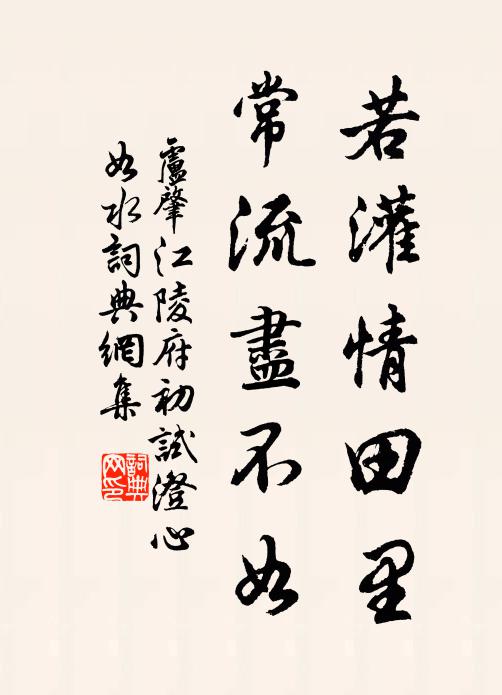 若灌情田里
常流盡不如
盧肇江陵府初試澄心
如水詞典網集
詞典网印